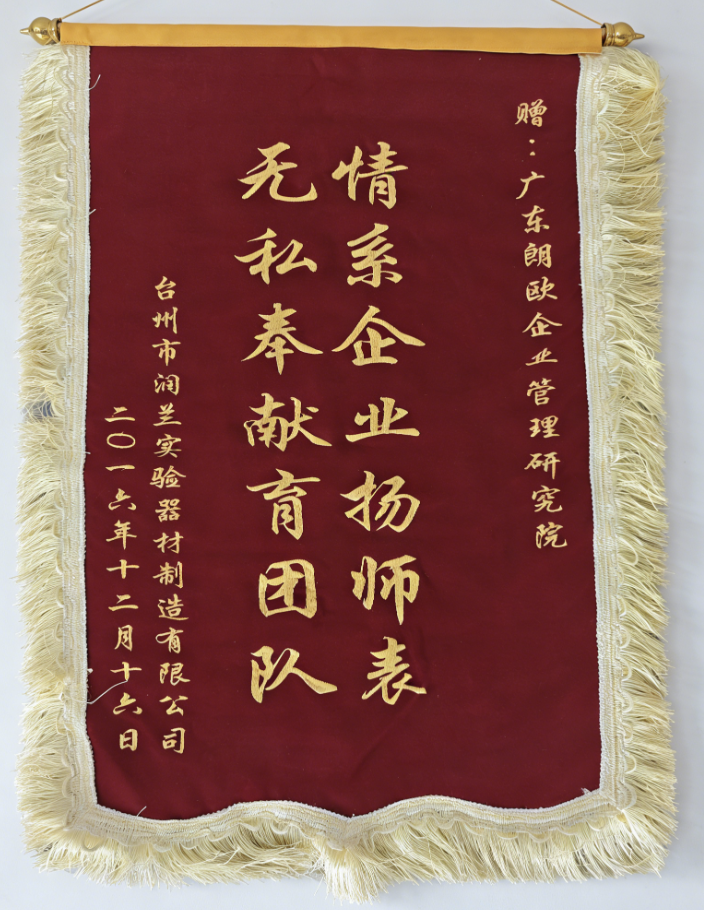 赠：广东朗欧企业管理研究院
情系企业扬师表
无私奉献育团队
台州市润兰实验器材制造有限公司
二〇一六年十二月十六日